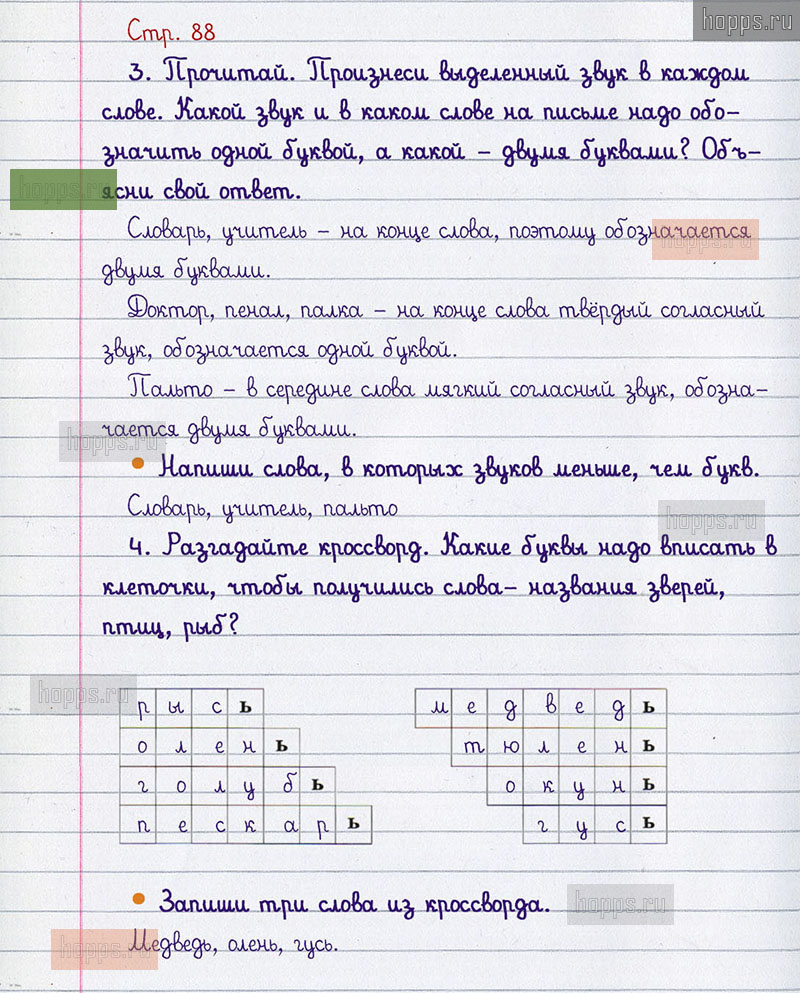 hopps.ru
Стр. 88
3. Прочитай. Произнеси выделенный звук в каждом
слове. Какой звук и в каком слове на письме надо обо-
значить одной буквой, а какой – двумя буквами? Объ-
hopps.ru
ясни свой ответ.
Словарь, учитель – на конце слова, поэтому обозначается
hopps.ru
двумя буквами.
Доктор, пенал, палка – на конце слова твёрдый согласный
звук, обозначается одной буквой.
Пальто – в середине слова мягкий согласный звук, обозна-
чается двумя буквами.
hopps.ru
• Напиши слова, в которых звуков меньше, чем букв.
Словарь, учитель, пальто
hopps.ru
4. Разгадайте кроссворд. Какие буквы надо вписать в
клеточки, чтобы получились слова– названия зверей,
птиц, рыб?
hopps.ru
р ы с ь
о л е н ь
г о л у б ь
п е с к а р ь
м е д в е д ь
т ю л е н ь
о к у н ь
г у с ь
• Запиши три слова из кроссворда.
hopps.ru
Медведь, олень, гусь.
hopps.ru